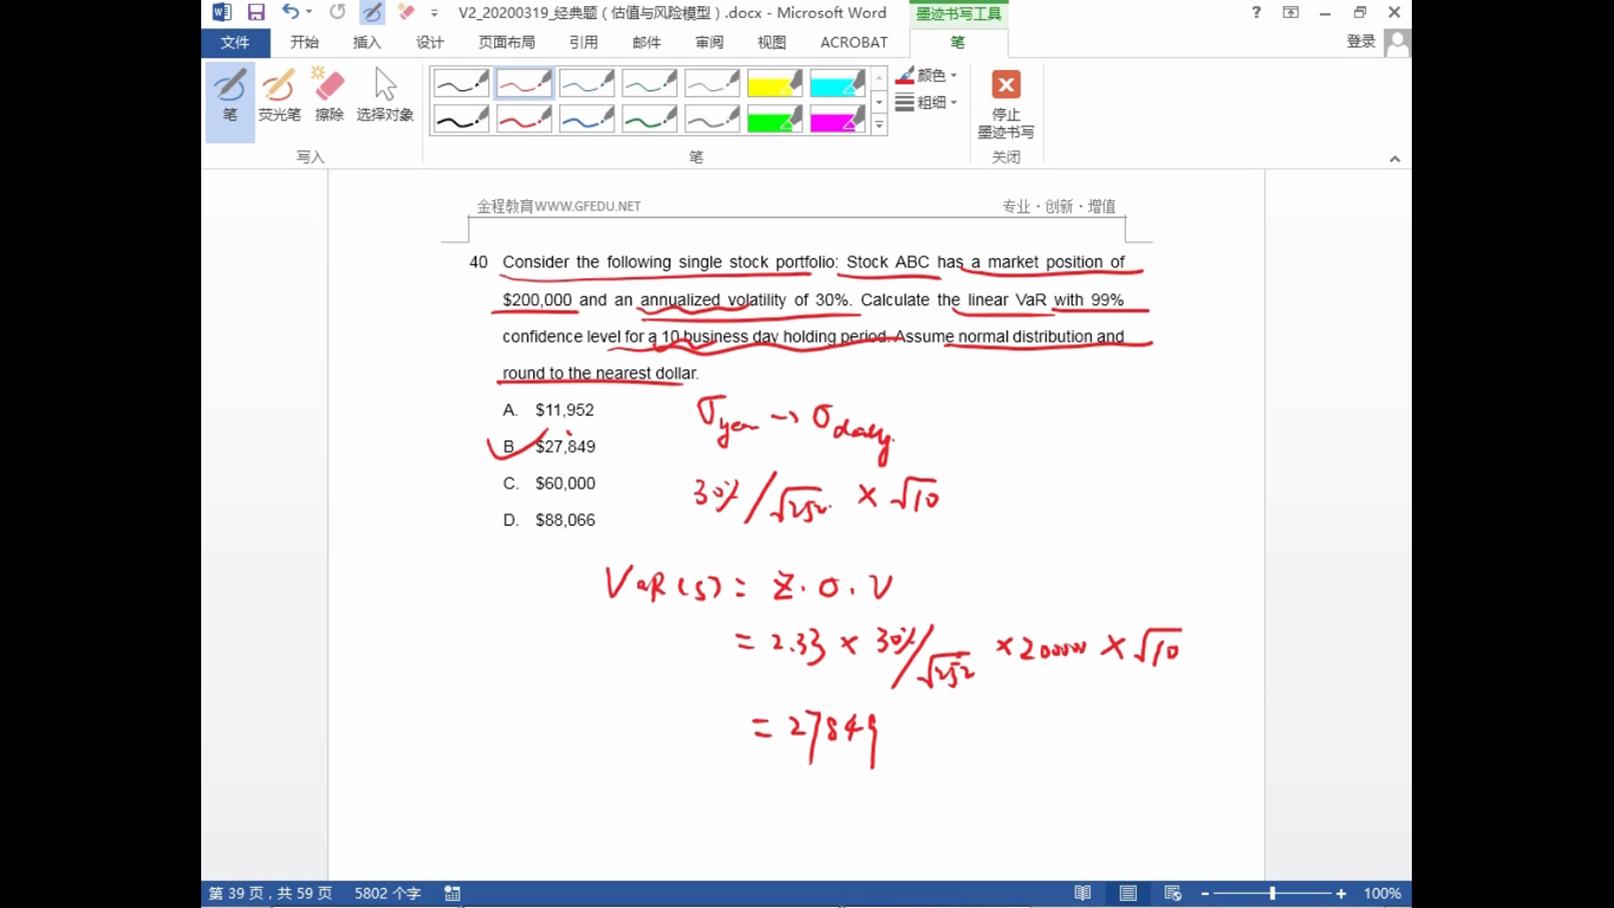 V2_20200319_经典题（估值与风险模型）.docx - Microsoft Word
墨迹书写工具
?
文件 开始 插入 设计 页面布局 引用 邮件 审阅 视图 ACROBAT 笔 登录
笔 荧光笔 擦除 选择对象
颜色
粗细
停止
墨迹书写
写入 笔 关闭
金程教育WWW.GFEDU.NET 专业·创新·增值
40 Consider the following single stock portfolio: Stock ABC has a market position of
$200,000 and an annualized volatility of 30%. Calculate the linear VaR with 99%
confidence level for a 10 business day holding period. Assume normal distribution and
round to the nearest dollar.
A. $11,952
B. $27,849
C. $60,000
D. $88,066
σyear → σdaily.
30% / √252 × √10
VaR($) = Z.σ.V
= 2.33 × 30%/√252 × 200000 × √10
= 27849
第 39 页，共 59 页 5802 个字 100%